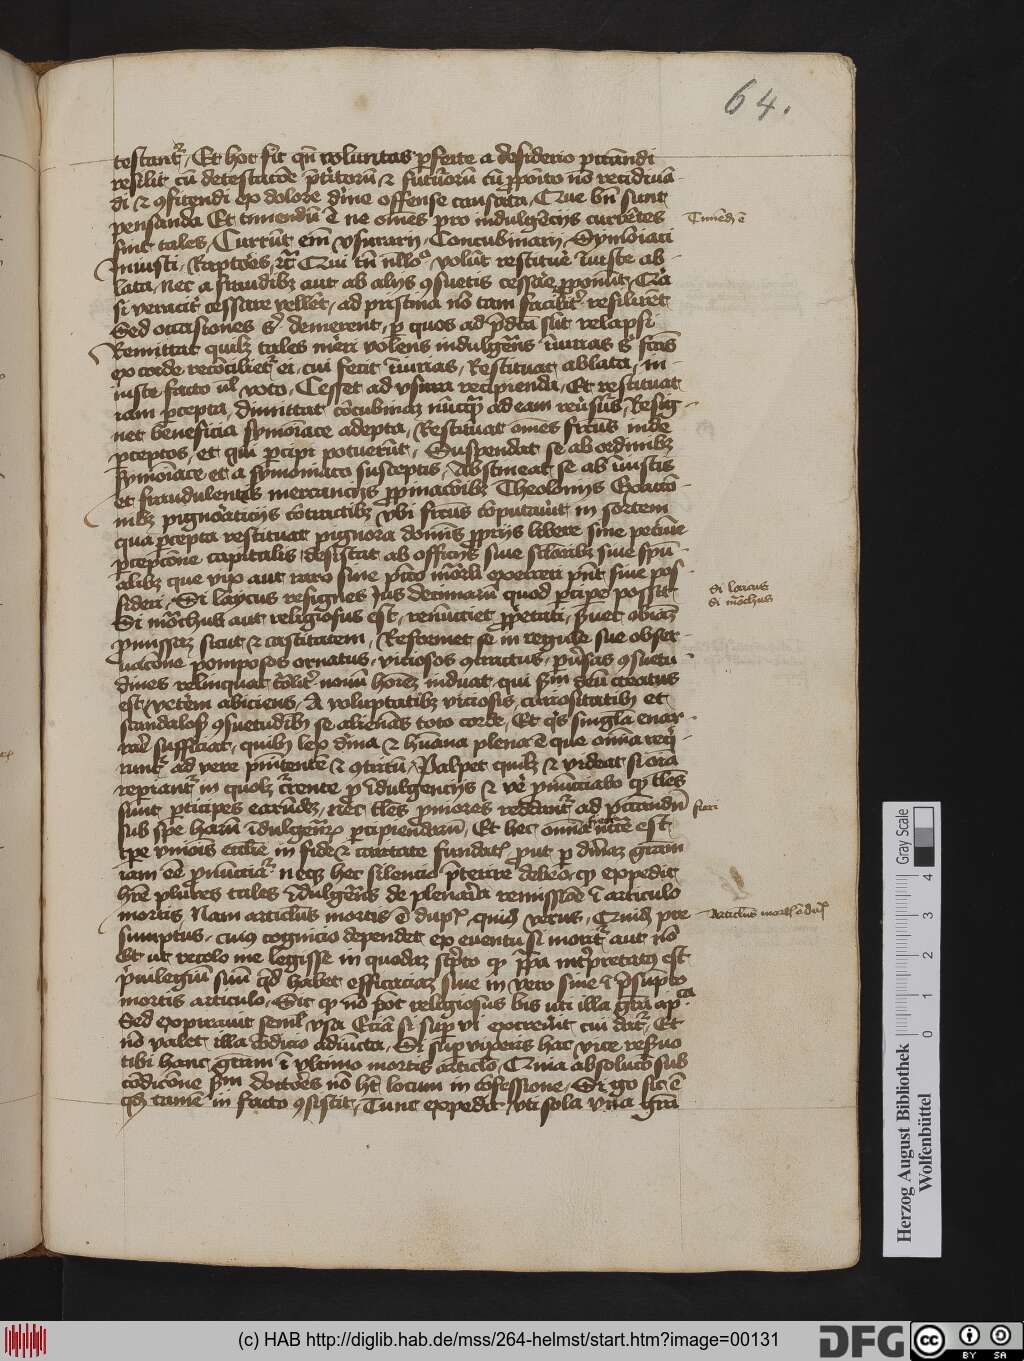 64.
testantur Et hoc sit qn voluntas pfecte a desiderio peccandi
resilit cu detestacoe pteritoru et futuroru cu pposito no recidiua-
di et confitendi ex dolore diuine offense causata Que bn sunt
pensanda Et timendu e ne omes pro indulgencijs currentes
Timendu e
sint tales Currut eni vsurarij Concubinarij Symoniaci
Iniusti Raptores Qui tn nllo volut restituere iniuste ab-
lata nec a fraudibz aut ab alijs consuetis cessare pponunt
si veraciter cessare vellent ad pristina no tam faciliter resilirent
Sed occasiones demerent p quos ad pdcta sut relapsi
Remittat quilz tales meri volens indulgens iniurias
ex corde reconcilietur ei cui fecit iniurias Restituat ablata in-
iuste facto ul voto Cesset ad vsura recipienda Et restituat
iam pcepta dimittat concubinaz nuq ad eam reusurus Resig-
net beneficia symoniace adepta Restituat omes fructus inde
pceptos et qui pcipi potuerut Suspendat se ab ordinibz
symoniace et a symoniaco susceptis Abstineat se ab iniustis
et fraudulentis mercancijs ppinacoibz Theolonijs Exacco-
nibz pignoraticijs contractibz vbi fructus computauit in sortem
qua pcepta restituat pignora dominis pprijs libere sine pecunie
pcepcione capitalis desistat ab officijs siue siue spu-
alibz que vix aut raro sine pcto mortali exerceri pnt siue pos-
sideri Si laycus resignes Ius decimaru quod pcipe possit
Si laicus
Si monachus aut religiosus est renuciet pprietati seruet obiam
Si monachus
pmissaz sicut et castitatem Reformet se in regule sue obser-
uacione pomposos ornatus viciosos contractus puersas consuetu-
dines relinquat nouu hoiez induat qui scdm deu creatus
est veterem abiciens A voluptatibz viciosis curiositatibus et
scandalosis consuetudinibus se alienans toto corde Et quis singula enar-
rare sufficiat quibus lex diuina et humana plena e que omnia requi-
runtur ad vere penitente et contritu Palpet quilz et videat si omnia
repiantur in quolz currente p indulgencijs et vere pnunciabo tales
sunt pticipes earundez nec tales priores reddantur ad peccandu
fieri
sub spe haru indulgenciaru pcipiendaru Et hec omnia est
tpe vnionis ecclie in fide et caritate fundate prout p diuinaz graciam
iam esse pnunciatur neqz hec silencio preterire debeo qz expedit
hre plures tales indulgens de plenaria remissione in articulo
mortis Nam articulus mortis e duplex quidam verus Quidam pre-
Articulus mortis e duplex
sumptus cuius cognicio dependet ex euentu si moritur aut no
Et ut recolo me legisse in quodaz scripto qz papa interpretatus est
priuilegiu suu quod habet efficaciaz siue in vero siue in presumpto
mortis articulo Sic qz no potest religiosus bis uti illa gratia
Sed expirauit semel vsa Etiam si sup vi exercuerit cui datur Et
no valet illa condicio adiuncta Si supuixeris hac vice reseruo
tibi hanc gratiam in vltimo mortis articulo Quia absolucio sub
condicione scdm doctores no habet locum in confessione Si go sic e
qd tamen in facto consistit Tunc expedit vti sola vna gratia
Gray Scale
4
3
2
1
0
Herzog August Bibliothek
Wolfenbüttel
(c) HAB http://diglib.hab.de/mss/264-helmst/start.htm?image=00131
DFG
cc
BY SA